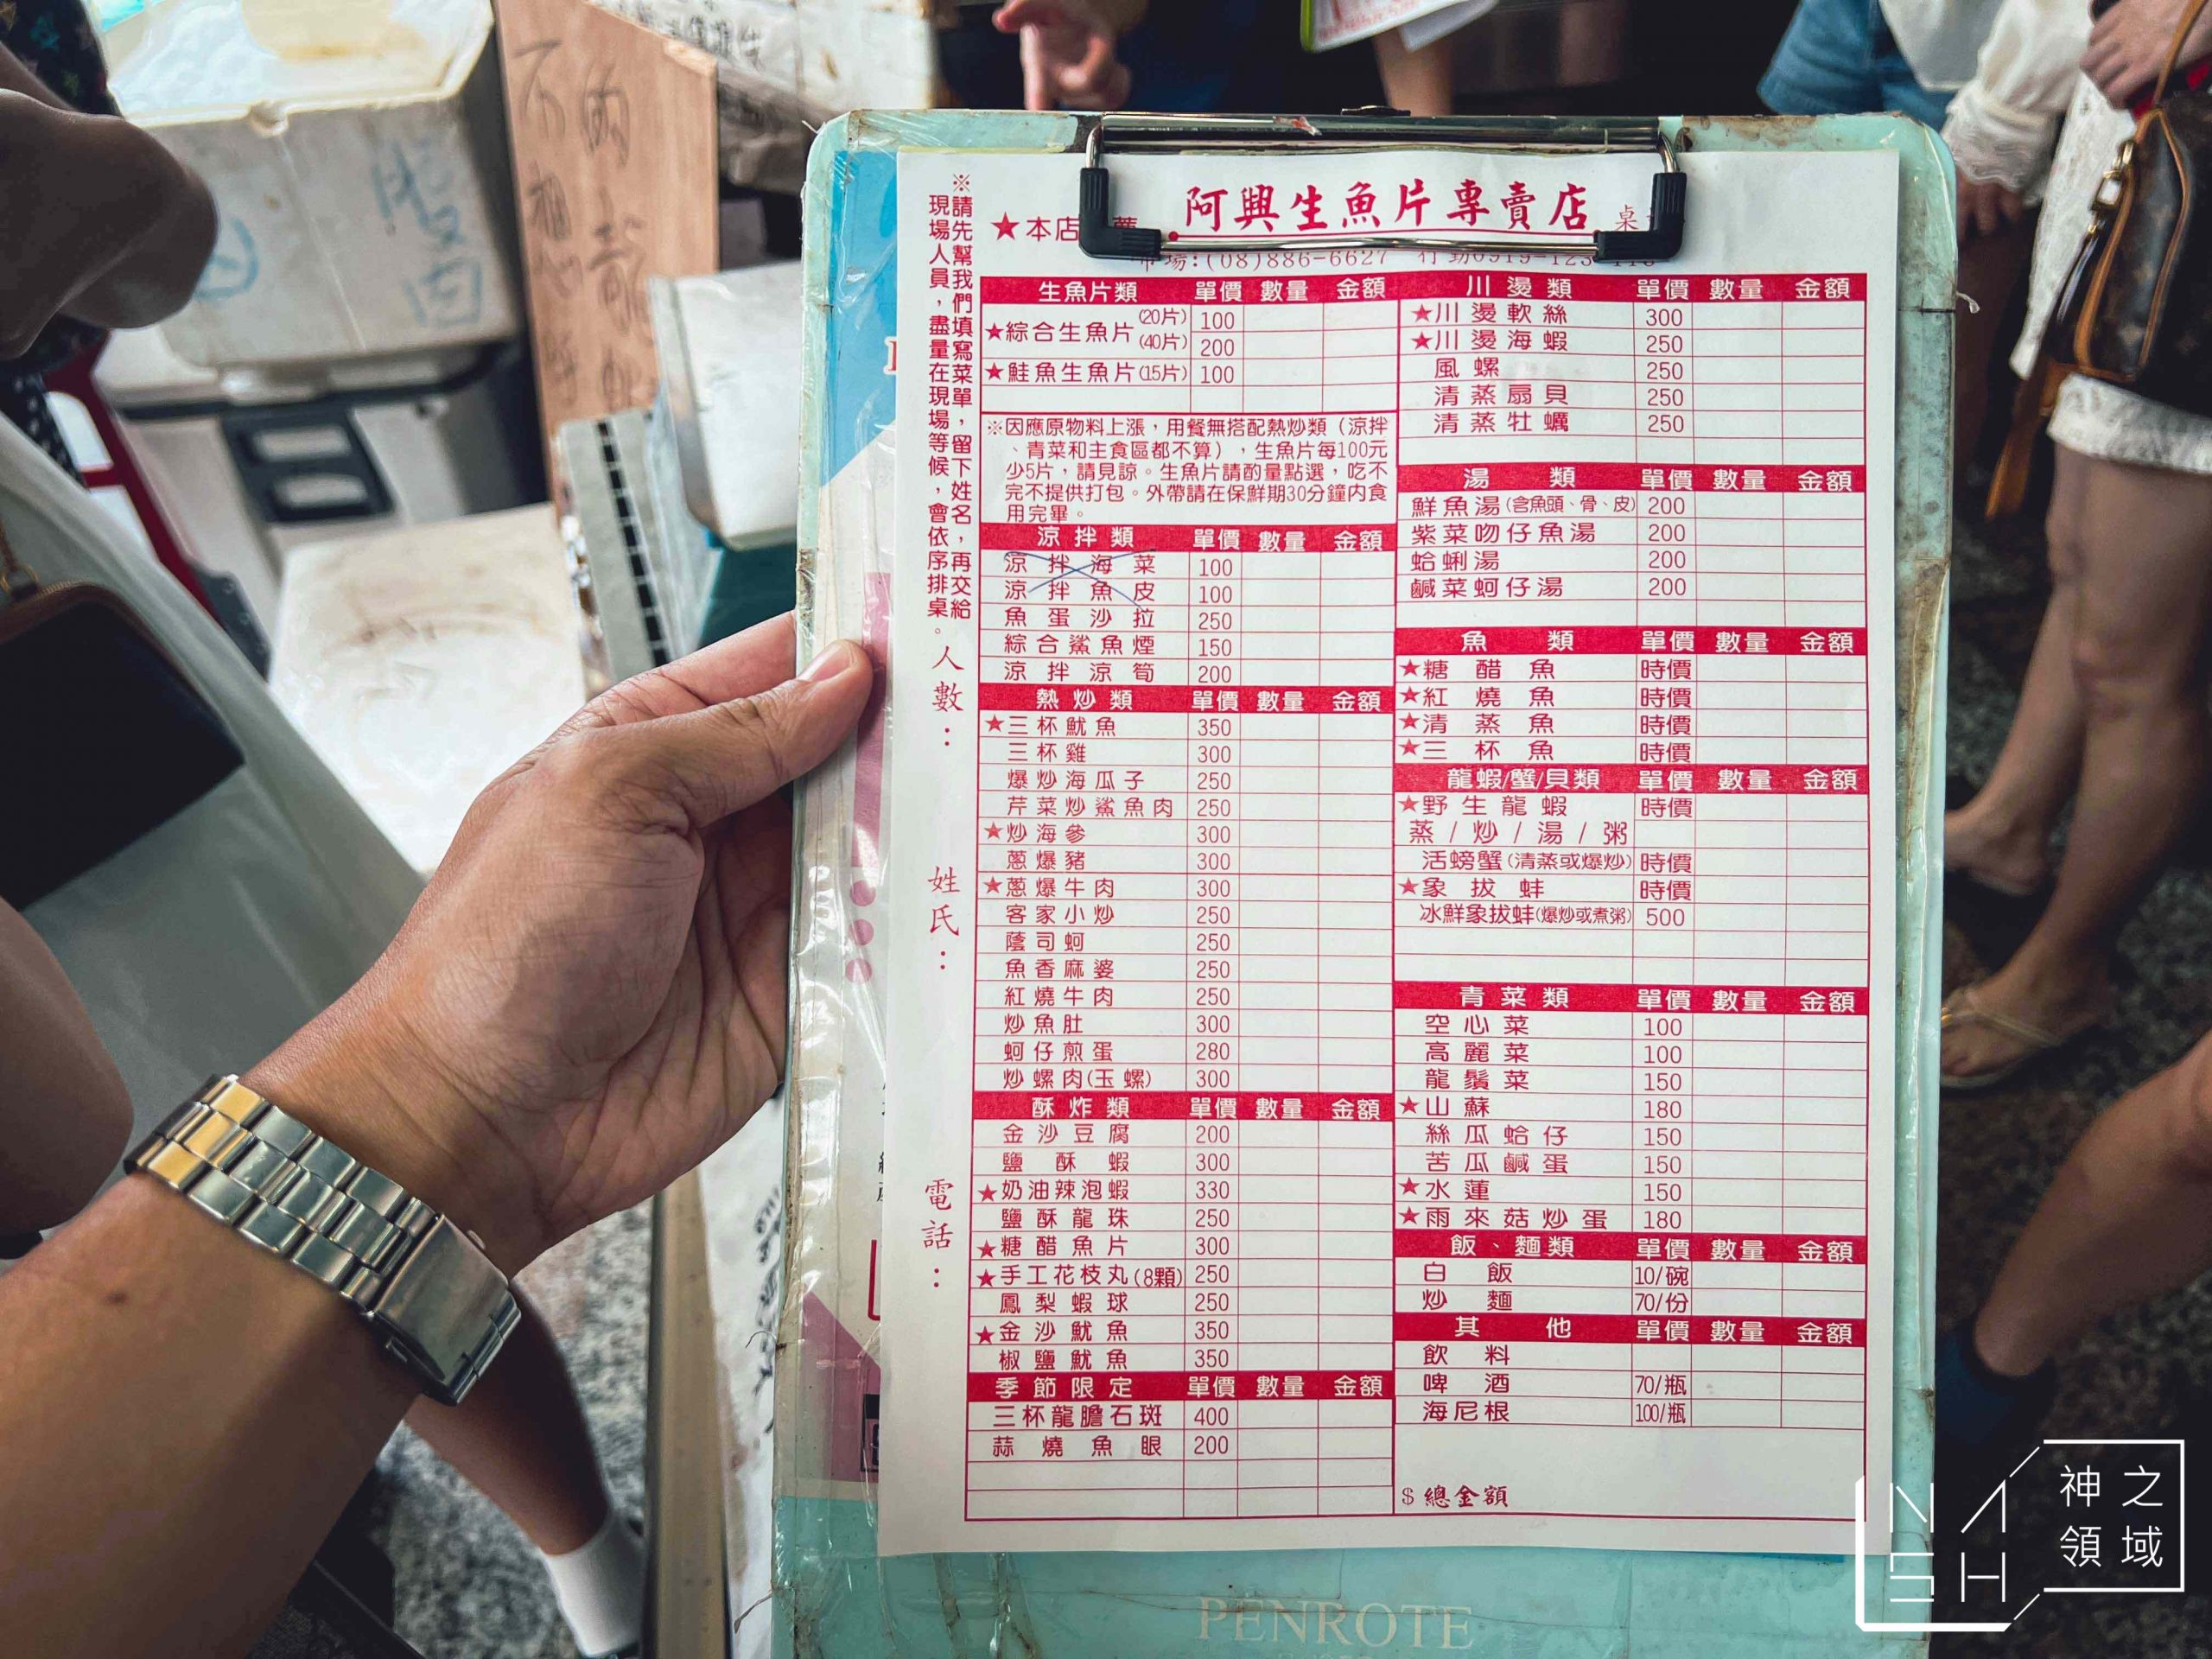 ※請先幫我們填寫菜單，留下姓名，再交給
現場人員，盡量在現場等候，會依序排桌。
人數：
姓氏：
電話：
★本店
阿興生魚片專賣店
桌
市場:(08)886-6627
生魚片類 單價 數量 金額
★綜合生魚片 (20片) 100
(40片) 200
★鮭魚生魚片(15片) 100
※因應原物料上漲，用餐無搭配熱炒類（涼拌
、青菜和主食區都不算），生魚片每100元
少5片，請見諒。生魚片請酌量點選，吃不
完不提供打包。外帶請在保鮮期30分鐘內食
用完畢。
涼拌類 單價 數量 金額
涼拌海菜 100
涼拌魚皮 100
魚蛋沙拉 250
綜合鯊魚煙 150
涼拌涼筍 200
熱炒類 單價 數量 金額
★三杯魷魚 350
三杯雞 300
爆炒海瓜子 250
芹菜炒鯊魚肉 250
★炒海參 300
蔥爆豬 300
★蔥爆牛肉 300
客家小炒 250
蔭司蚵 250
魚香麻婆 250
紅燒牛肉 250
炒魚肚 300
蚵仔煎蛋 280
炒螺肉(玉螺) 300
酥炸類 單價 數量 金額
金沙豆腐 200
鹽酥蝦 300
★奶油辣泡蝦 330
鹽酥龍珠 250
★糖醋魚片 300
★手工花枝丸(8顆) 250
鳳梨蝦球 250
★金沙魷魚 350
椒鹽魷魚 350
季節限定 單價 數量 金額
三杯龍膽石斑 400
蒜燒魚眼 200
川燙類 單價 數量 金額
★川燙軟絲 300
★川燙海蝦 250
風螺 250
清蒸扇貝 250
清蒸牡蠣 250
湯類 單價 數量 金額
鮮魚湯(含魚頭、骨、皮) 200
紫菜吻仔魚湯 200
蛤蜊湯 200
鹹菜蚵仔湯 200
魚類 單價 數量 金額
★糖醋魚 時價
★紅燒魚 時價
★清蒸魚 時價
★三杯魚 時價
龍蝦/蟹/貝類 單價 數量 金額
★野生龍蝦 時價
蒸/炒/湯/粥
活螃蟹(清蒸或爆炒) 時價
★象拔蚌 時價
冰鮮象拔蚌(爆炒或煮粥) 500
青菜類 單價 數量 金額
空心菜 100
高麗菜 100
龍鬚菜 150
★山蘇 180
絲瓜蛤仔 150
苦瓜鹹蛋 150
★水蓮 150
★雨來菇炒蛋 180
飯、麵類 單價 數量 金額
白飯 10/碗
炒麵 70/份
其他 單價 數量 金額
飲料
啤酒 70/瓶
海尼根 100/瓶
$總金額
PENROTE
NASH
神之
領域